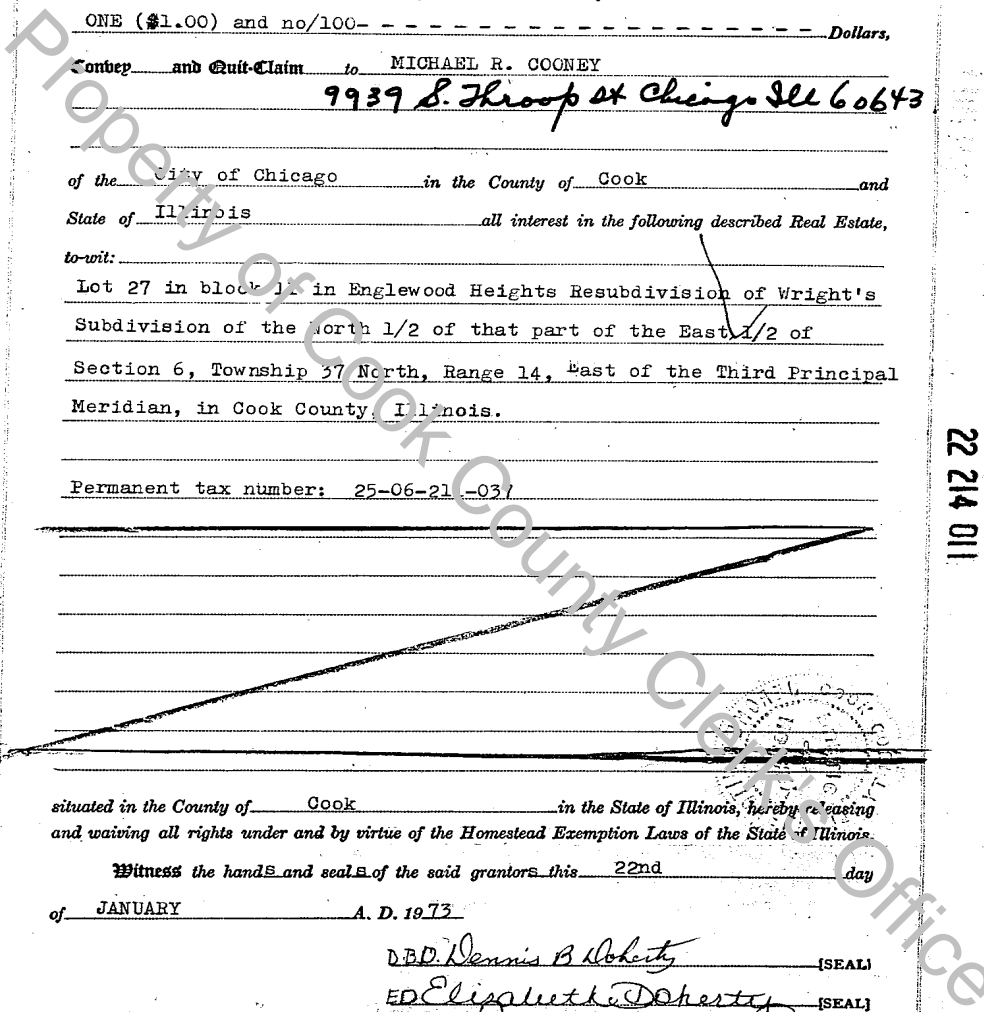 ONE ($1.00) and no/100- - - - - - - - - - - - - - - - - - - - Dollars,
Convey and Quit-Claim to MICHAEL R. COONEY
9939 S. Throop St Chicago Ill 60643
of the City of Chicago in the County of Cook and
State of Illinois all interest in the following described Real Estate,
to-wit:
Lot 27 in block in Englewood Heights Resubdivision of Wright's
Subdivision of the North 1/2 of that part of the East 1/2 of
Section 6, Township 37 North, Range 14, East of the Third Principal
Meridian, in Cook County, Illinois.
Permanent tax number: 25-06-21
22 214 011
situated in the County of Cook in the State of Illinois, hereby releasing
and waiving all rights under and by virtue of the Homestead Exemption Laws of the State of Illinois.
Witness the hands and seals of the said grantors this 22nd day
of JANUARY A. D. 1973
D.B.D. Dennis B Doherty [SEAL]
ED Elizabeth Doherty [SEAL]
Property of Cook County Clerk's Office